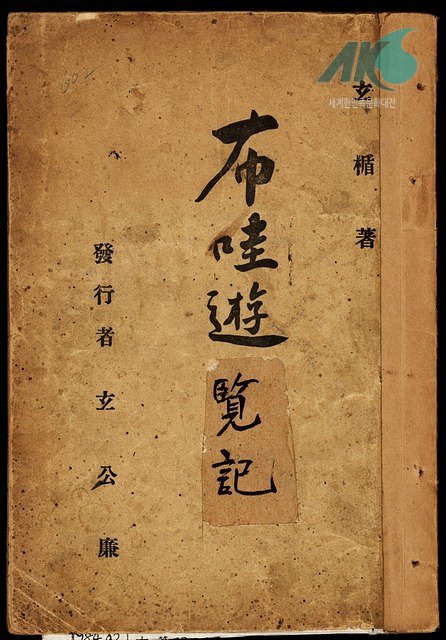 AKS
세계한민족문화대전
玄楯著
布哇遊覽記
發行者玄公廉